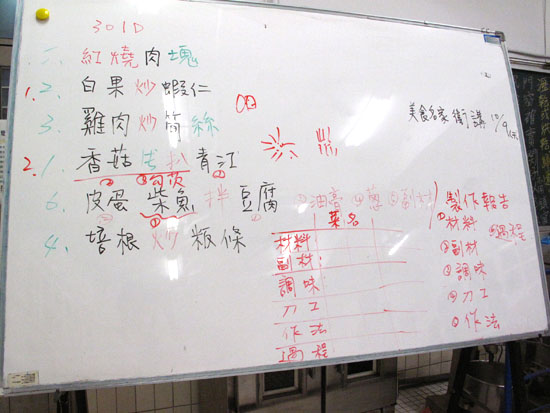 301D
紅燒肉塊
1. 2. 白果炒蝦仁
3. 雞肉炒筍絲
2. 1. 香菇 扒青江
6. 皮蛋 柴魚 拌 豆腐
4. 培根 炒 粄條
美食名家 街 講 10/9
①油膏 ④蔥 ⑤副材
菜名
材料
副材
調味
刀工
作法
過程
製作報告
①材料
②副材
③調味
④刀工
作法
過程